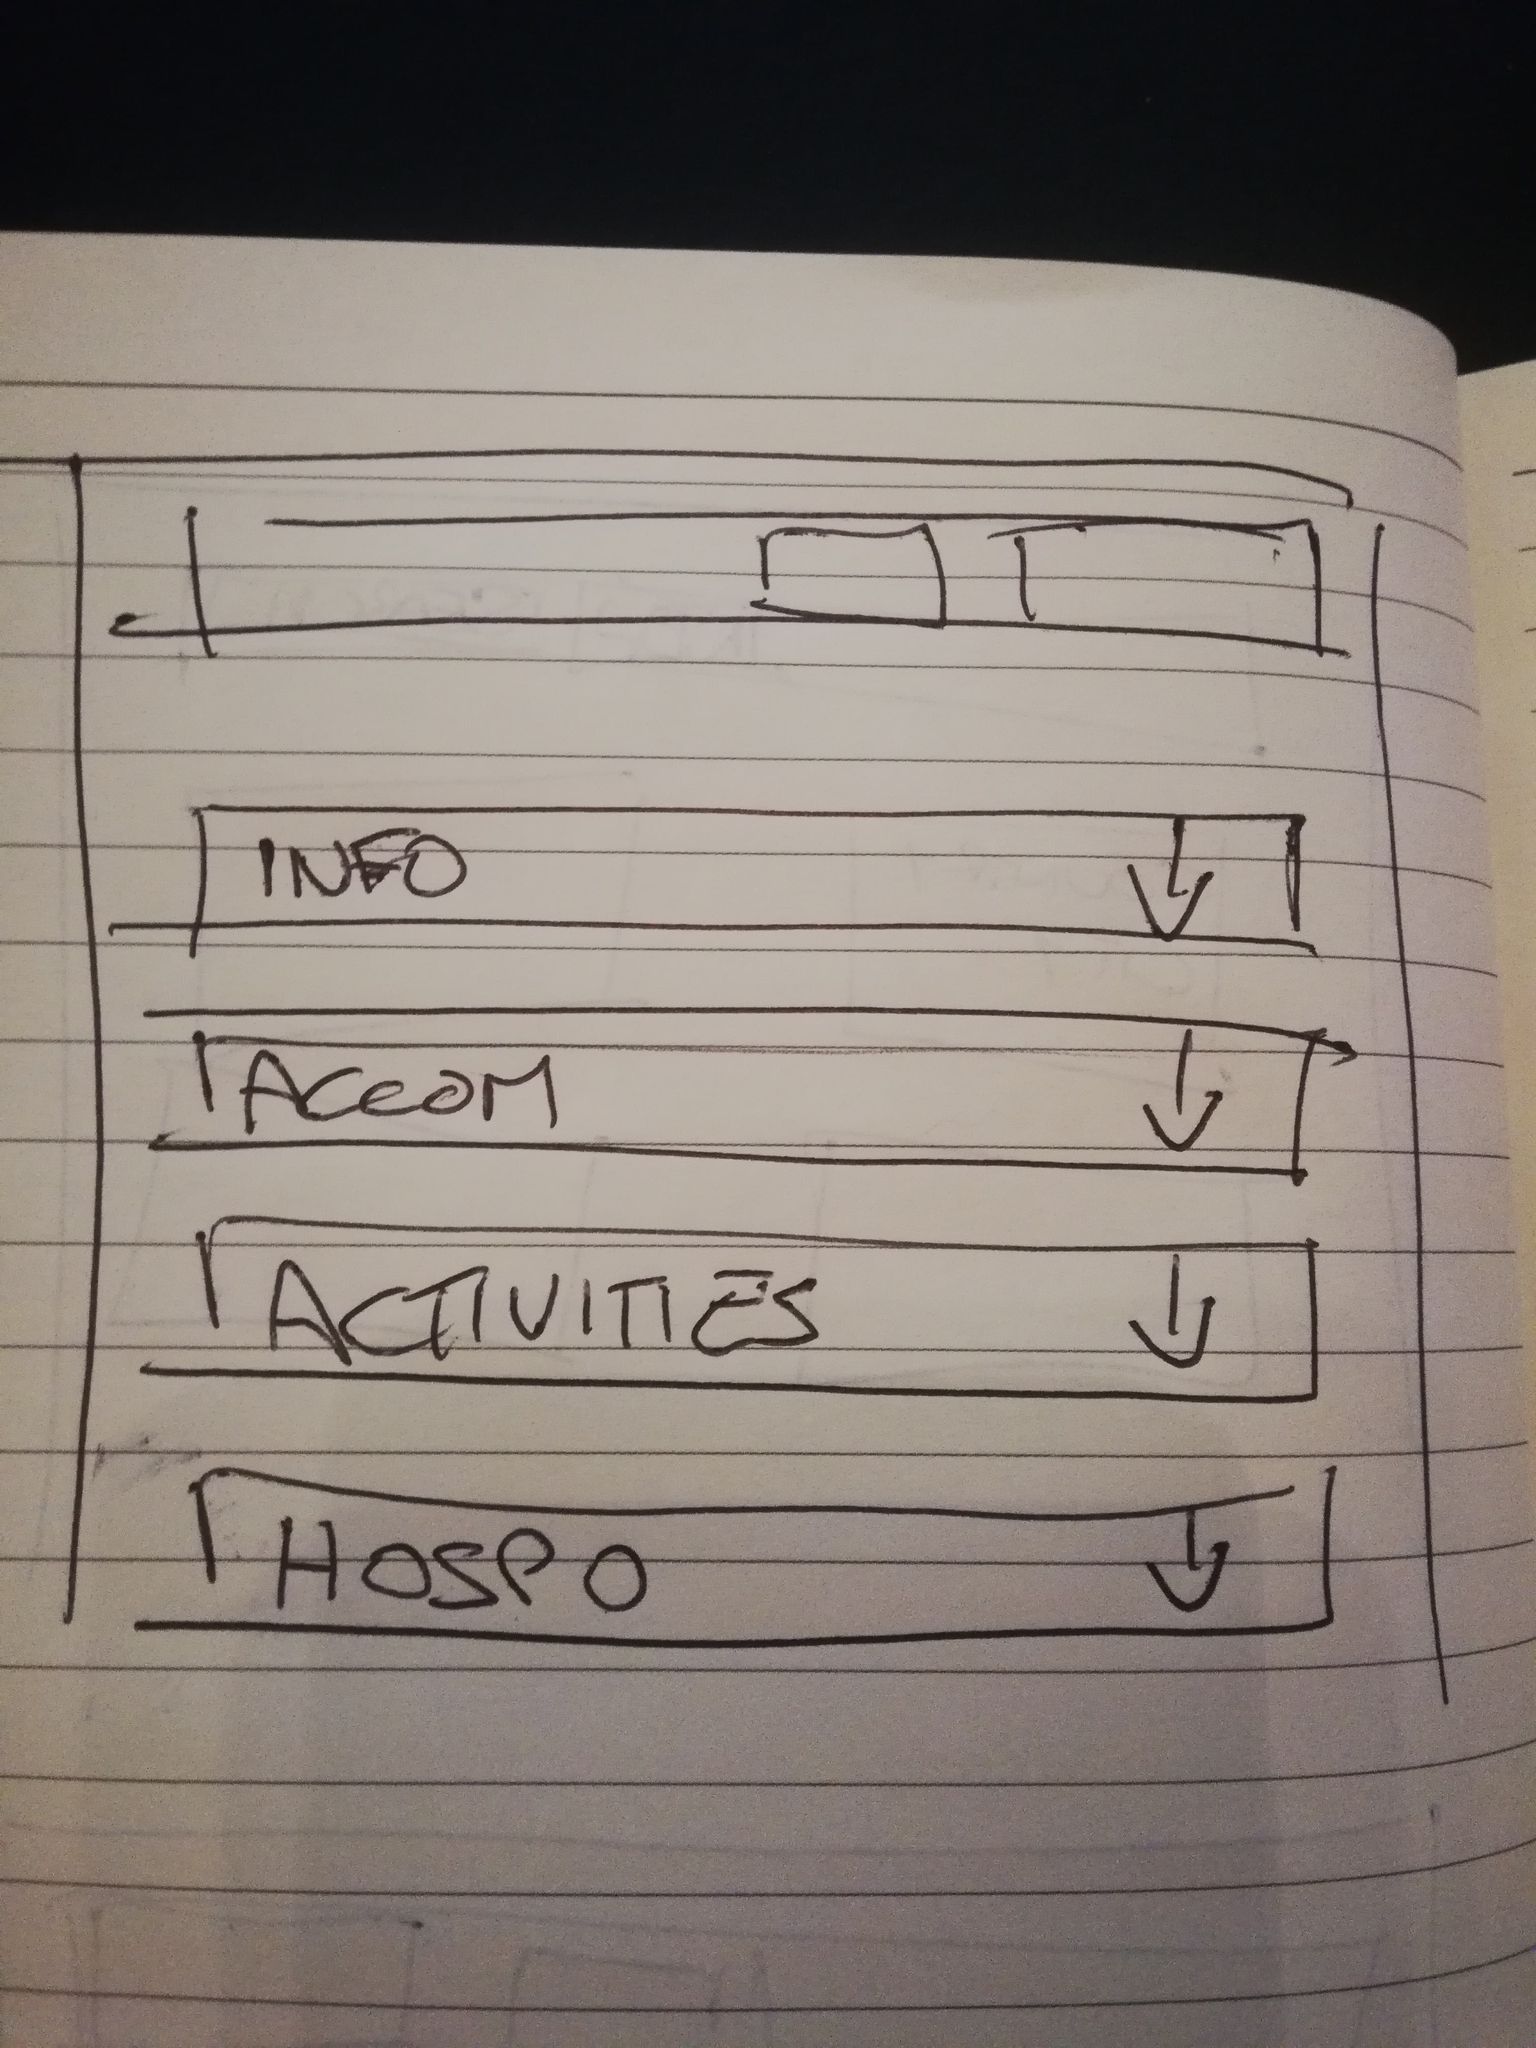 INFO
ACCOM
ACTIVITIES
HOSPO